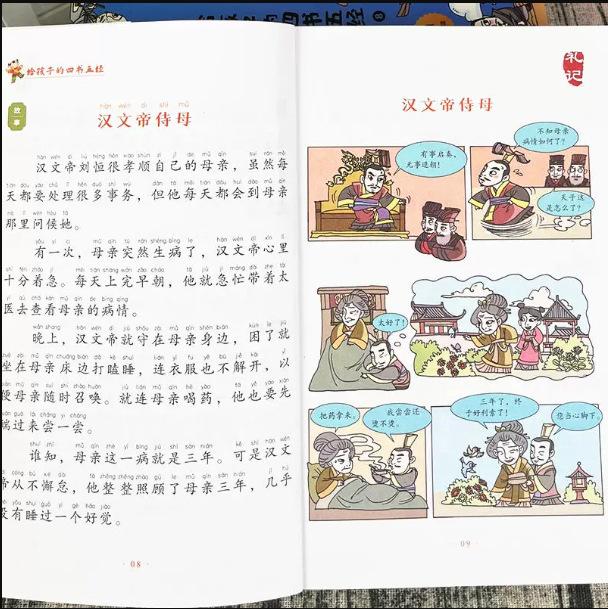 给孩子的四书五经
故事
hàn wén dì shì mǔ
汉文帝侍母
汉文帝刘恒很孝顺自己的母亲，虽然每
天都要处理很多事务，但他每天都会到母亲
那里问候她。
有一次，母亲突然生病了，汉文帝心里
十分着急。每天上完早朝，他就急忙带着太
医去查看母亲的病情。
晚上，汉文帝就守在母亲身边，困了就
坐在母亲床边打瞌睡，连衣服也不解开，以
便母亲随时召唤。就连母亲喝药，他也要先
端过来尝一尝。
谁知，母亲这一病就是三年。可是汉文
帝从不懈怠，他整整照顾了母亲三年，几乎
没有睡过一个好觉。
08
四书五经
礼记
汉文帝侍母
有事启奏，
无事退朝！
不知母亲
病情如何了？
天子这
是怎么了？
太好了！
把药拿来。
我尝尝还
烫不烫。
三年了，终
于好利索了！
您当心脚下。
09